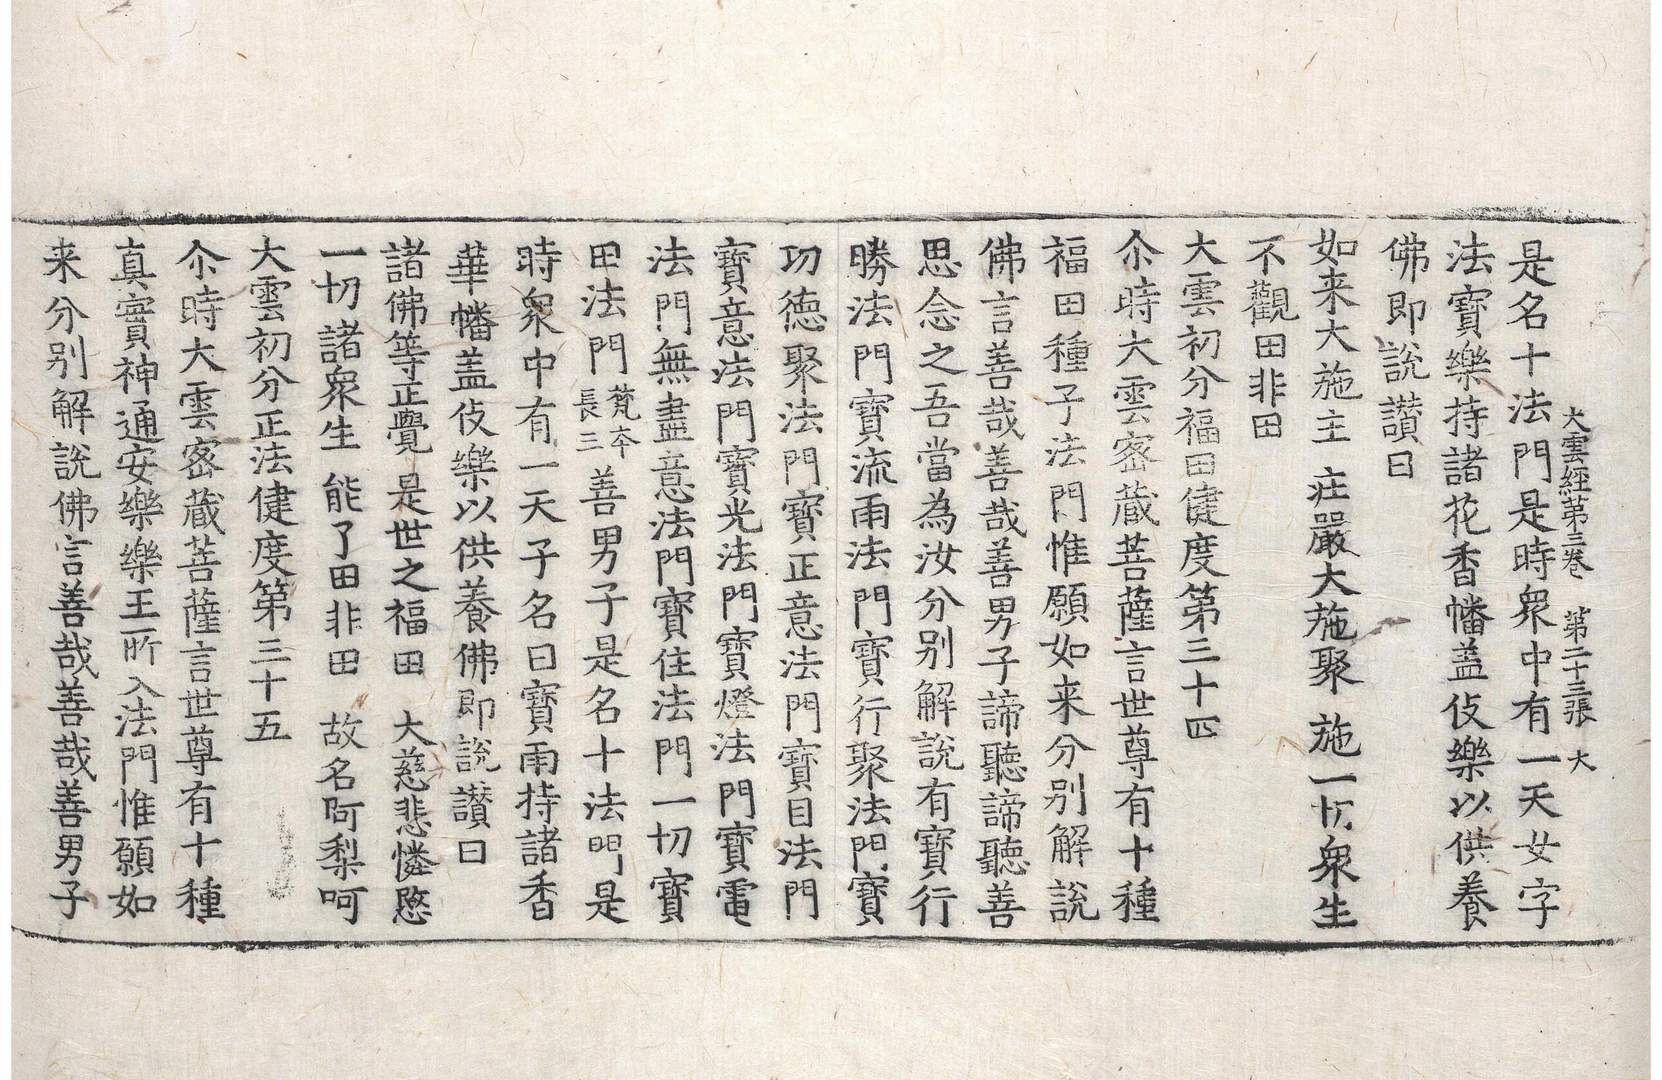 大雲經第三卷　第二十三張　大
是名十法門是時衆中有一天女字
法寶樂持諸花香幡盖伎樂以供養
佛即說讃曰
如来大施主　庄嚴大施聚　施一切衆生
不觀田非田
大雲初分福田健度第三十四
尒時大雲密蔵菩薩言世尊有十種
福田種子法門惟願如来分别解說
佛言善哉善哉善男子諦聽諦聽善
思念之吾當為汝分别解說有寶行
勝法門寶流雨法門寶行聚法門寶
功德聚法門寶正意法門寶目法門
寶意法門寶光法門寶燈法門寶電
法門無盡意法門寶住法門一切寶
田法門梵夲長三善男子是名十法門是
時衆中有一天子名曰寶雨持諸香
華幡盖伎樂以供養佛即說讃曰
諸佛等正覺　是世之福田　大慈悲憐愍
一切諸衆生　能了田非田　故名阿梨呵
大雲初分正法健度第三十五
尒時大雲密蔵菩薩言世尊有十種
真實神通安樂樂王所入法門惟願如
来分别解說佛言善哉善哉善男子